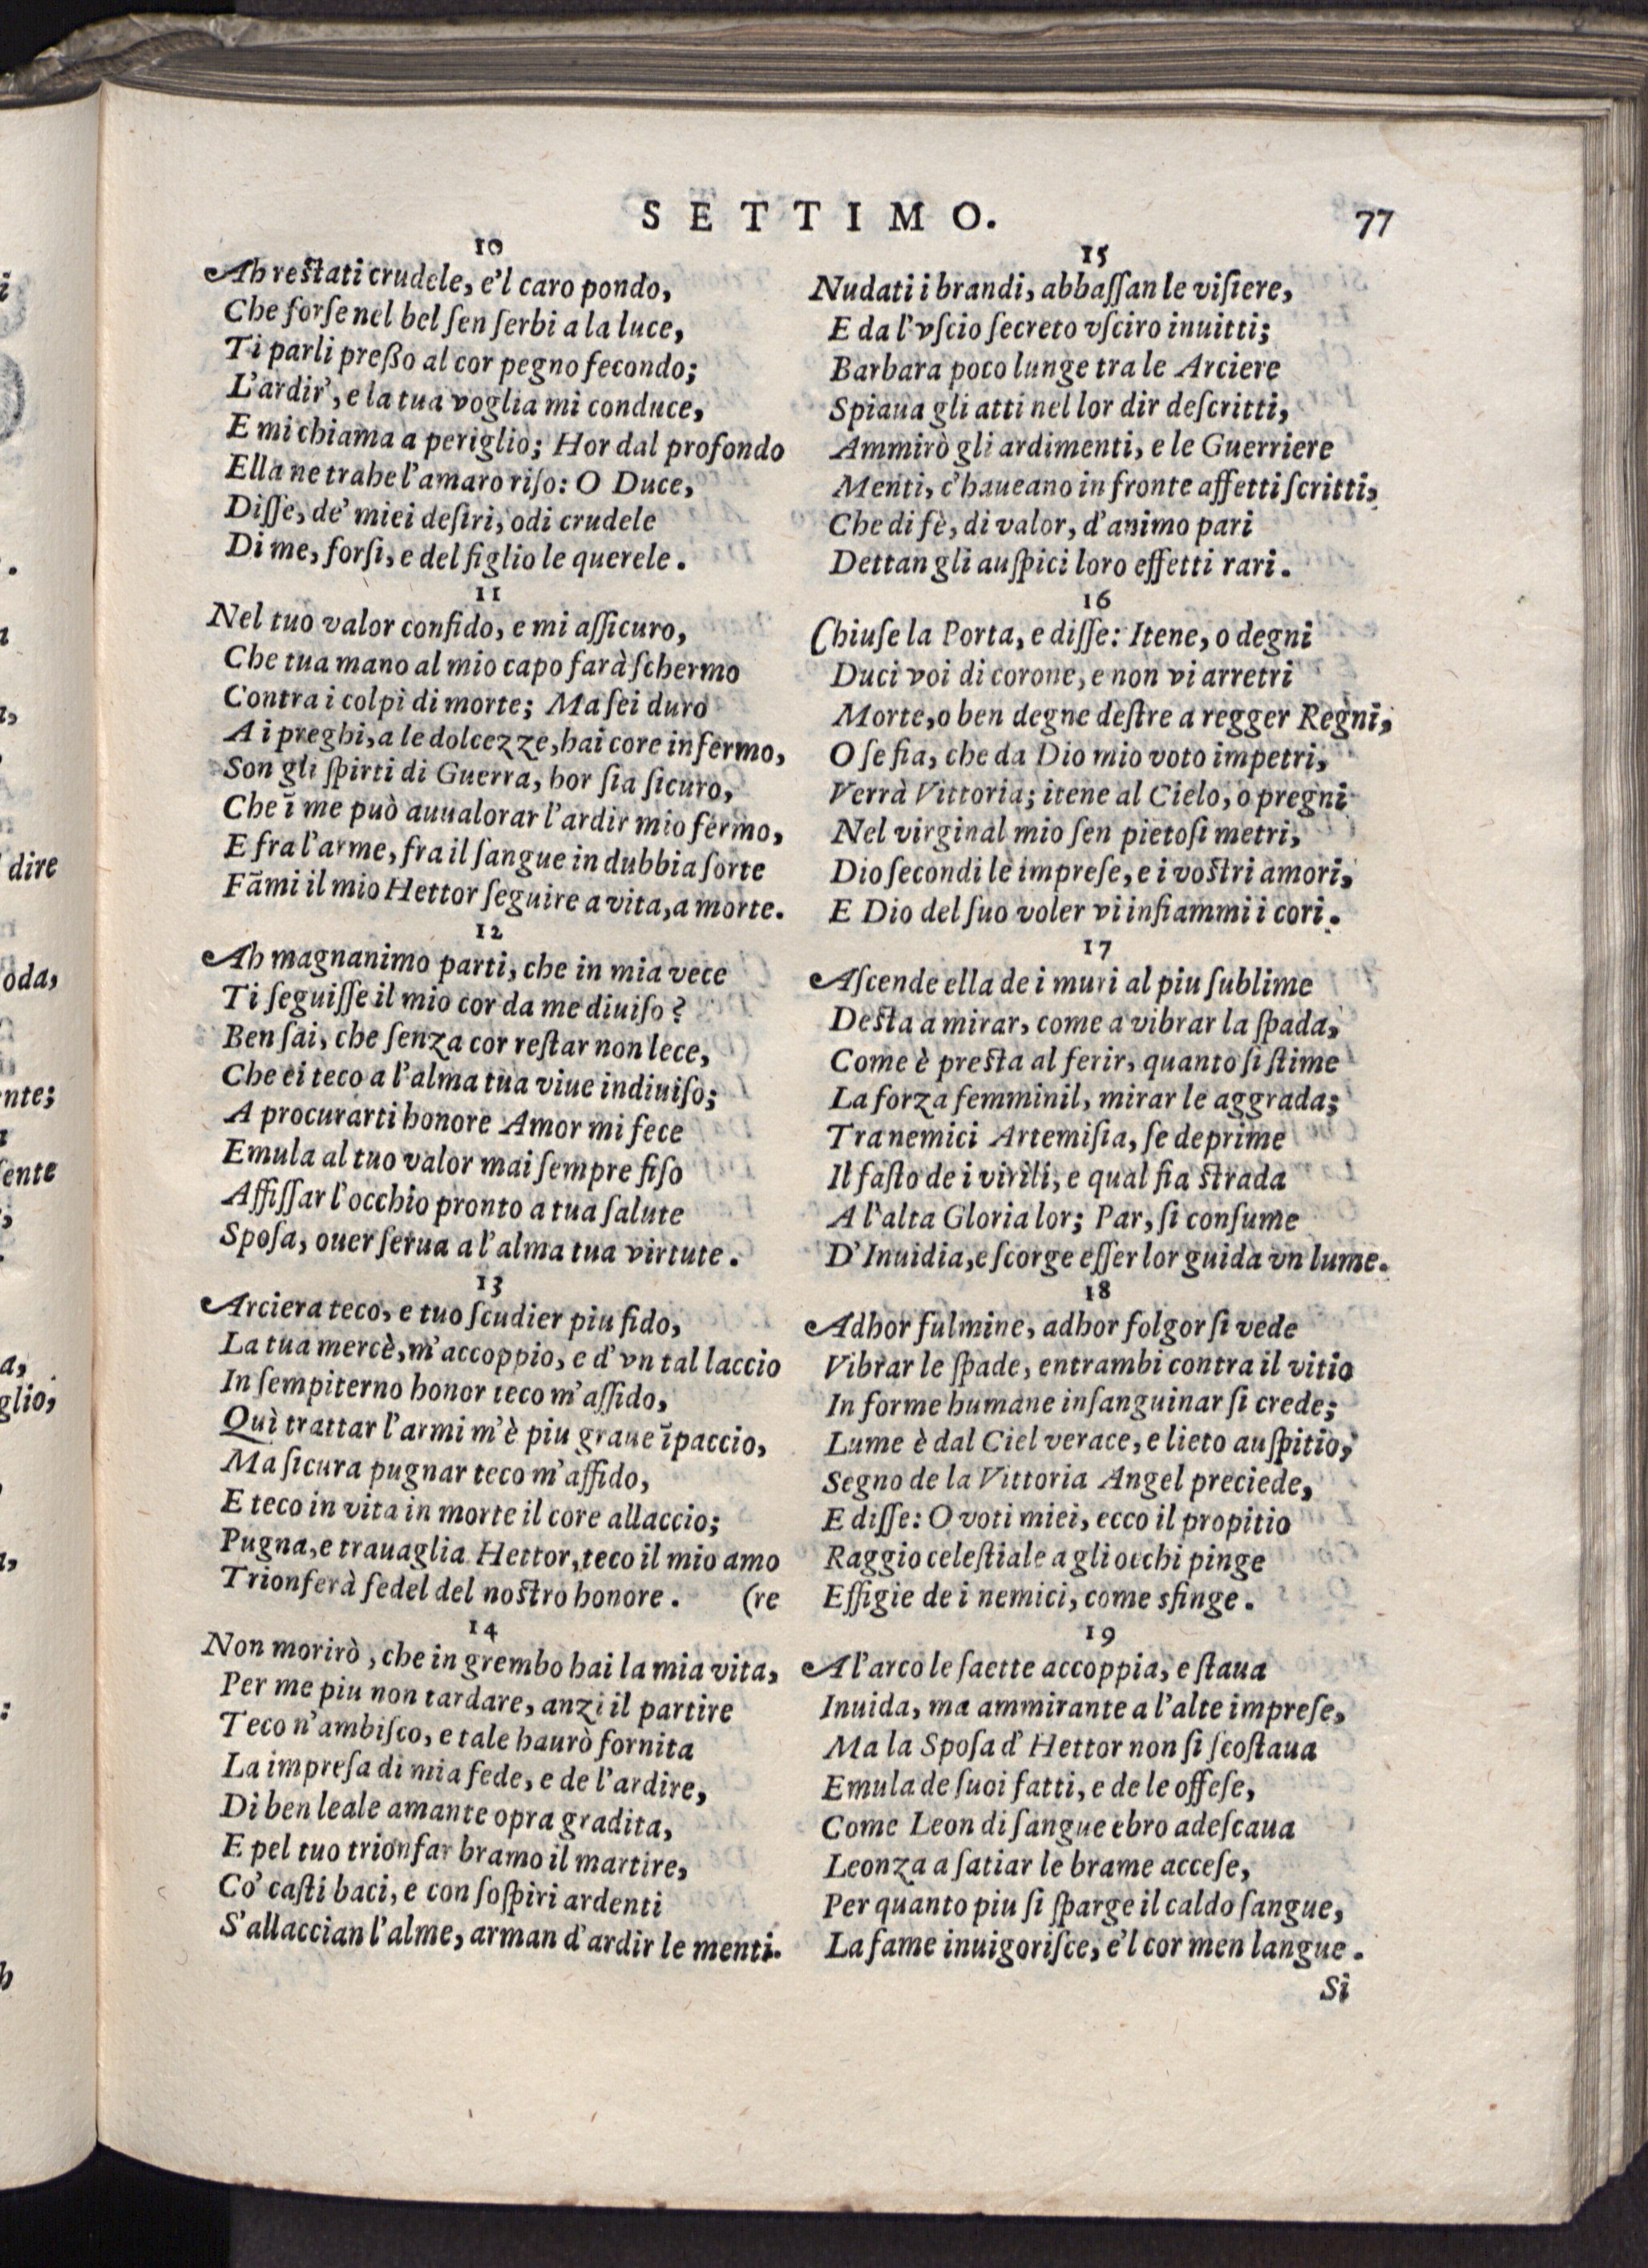 SETTIMO. 77
10
Ah restati crudele, e'l caro pondo,
Che forse nel bel sen serbi a la luce,
Ti parli presso al cor pegno fecondo;
L'ardir', e la tua voglia mi conduce,
E mi chiama a periglio; Hor dal profondo
Ella ne trahe l'amaro riso: O Duce,
Disse, de' miei desiri, odi crudele
Di me, forsi, e del figlio le querele.
11
Nel tuo valor confido, e mi assicuro,
Che tua mano al mio capo farà schermo
Contra i colpi di morte; Ma sei duro
A i preghi, a le dolcezze, hai core infermo,
Son gli spirti di Guerra, hor sia sicuro,
Che ī me può auualorar l'ardir mio fermo,
E fra l'arme, fra il sangue in dubbia sorte
Fāmi il mio Hettor seguire a vita, a morte.
12
Ah magnanimo parti, che in mia vece
Ti seguisse il mio cor da me diuiso?
Ben sai, che senza cor restar non lece,
Che ei teco a l'alma tua viue indiuiso;
A procurarti honore Amor mi fece
Emula al tuo valor mai sempre fiso
Affissar l'occhio pronto a tua salute
Sposa, ouer serua a l'alma tua virtute.
13
Arciera teco, e tuo scudier piu fido,
La tua mercè, m'accoppio, e d'vn tal laccio
In sempiterno honor teco m'assido,
Quì trattar l'armi m'è piu graue īpaccio,
Ma sicura pugnar teco m'affido,
E teco in vita in morte il core allaccio;
Pugna, e trauaglia Hettor, teco il mio amo
Trionferà fedel del nostro honore. (re
14
Non morirò, che in grembo hai la mia vita,
Per me piu non tardare, anzi il partire
Teco n'ambisco, e tale haurò fornita
La impresa di mia fede, e de l'ardire,
Di ben leale amante opra gradita,
E pel tuo trionfar bramo il martire,
Co' casti baci, e con sospiri ardenti
S'allaccian l'alme, arman d'ardir le menti.
15
Nudati i brandi, abbassan le visiere,
E da l'vscio secreto vsciro inuitti;
Barbara poco lunge tra le Arciere
Spiaua gli atti nel lor dir descritti,
Ammirò gli ardimenti, e le Guerriere
Menti, c'haueano in fronte affetti scritti,
Che di fè, di valor, d'animo pari
Dettan gli auspici loro effetti rari.
16
Chiuse la Porta, e disse: Itene, o degni
Duci voi di corone, e non vi arretri
Morte, o ben degne destre a regger Regni,
O se fia, che da Dio mio voto impetri,
Verrà Vittoria; itene al Cielo, o pregni
Nel virginal mio sen pietosi metri,
Dio secondi le imprese, e i vostri amori,
E Dio del suo voler vi infiammi i cori.
17
Ascende ella de i muri al piu sublime
Desta a mirar, come a vibrar la spada,
Come è presta al ferir, quanto si stime
La forza femminil, mirar le aggrada;
Tra nemici Artemisia, se deprime
Il fasto de i virili, e qual fia strada
A l'alta Gloria lor; Par, si consume
D'Inuidia, e scorge esser lor guida vn lume.
18
Adhor fulmine, adhor folgor si vede
Vibrar le spade, entrambi contra il vitio
In forme humane insanguinar si crede;
Lume è dal Ciel verace, e lieto auspitio,
Segno de la Vittoria Angel preciede,
E disse: O voti miei, ecco il propitio
Raggio celestiale a gli occhi pinge
Effigie de i nemici, come sfinge.
19
A l'arco le saette accoppia, e staua
Inuida, ma ammirante a l'alte imprese,
Ma la Sposa d'Hettor non si scostaua
Emula de suoi fatti, e de le offese,
Come Leon di sangue ebro adescaua
Leonza a satiar le brame accese,
Per quanto piu si sparge il caldo sangue,
La fame inuigorisce, e'l cor men langue.
Si